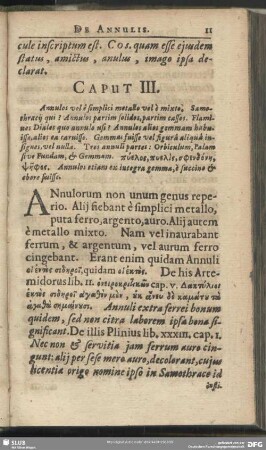 DE ANNULIS. 11
cule inscriptum est. COS. quam esse ejusdem
status, amictus, anulus, imago ipsa de-
clarat.
CAPUT III.
Annulos vel è simplici metallo vel è mixto. Samo-
thracij qui? Annulos partim solidos, partim casses. Flami-
nes Diales quo annulo usi? Annulos alios gemmam habu-
isse, alios ea caruisse. Gemmas fuisse vel figurâ aliquâ in-
signes, vel nulla. Tres annuli partes: Orbiculum, Palam
sive Fundam, & Gemmam.
Annulos etiam ex integra gemma, è succino &
ebore fuisse.
ANnulorum non unum genus repe-
rio. Alij fiebant è simplici metallo,
puta ferro, argento, auro. Alij autem
è metallo mixto. Nam vel inaurabant
ferrum, & argentum, vel aurum ferro
cingebant. Erant enim quidam Annuli
quidam De his Arte-
midorus lib. II. cap. v.
Annuli extra ferrei bonum
quidem, sed non citra laborem ipsa bona si-
gnificant. De illis Plinius lib. XXXIII. cap. I.
Nec non & servitia jam ferrum auro cin-
gunt: alij per sese mero auro, decolorant, cujus
licentiæ origo nomine ipso in Samothrace id
insti-
SLUB